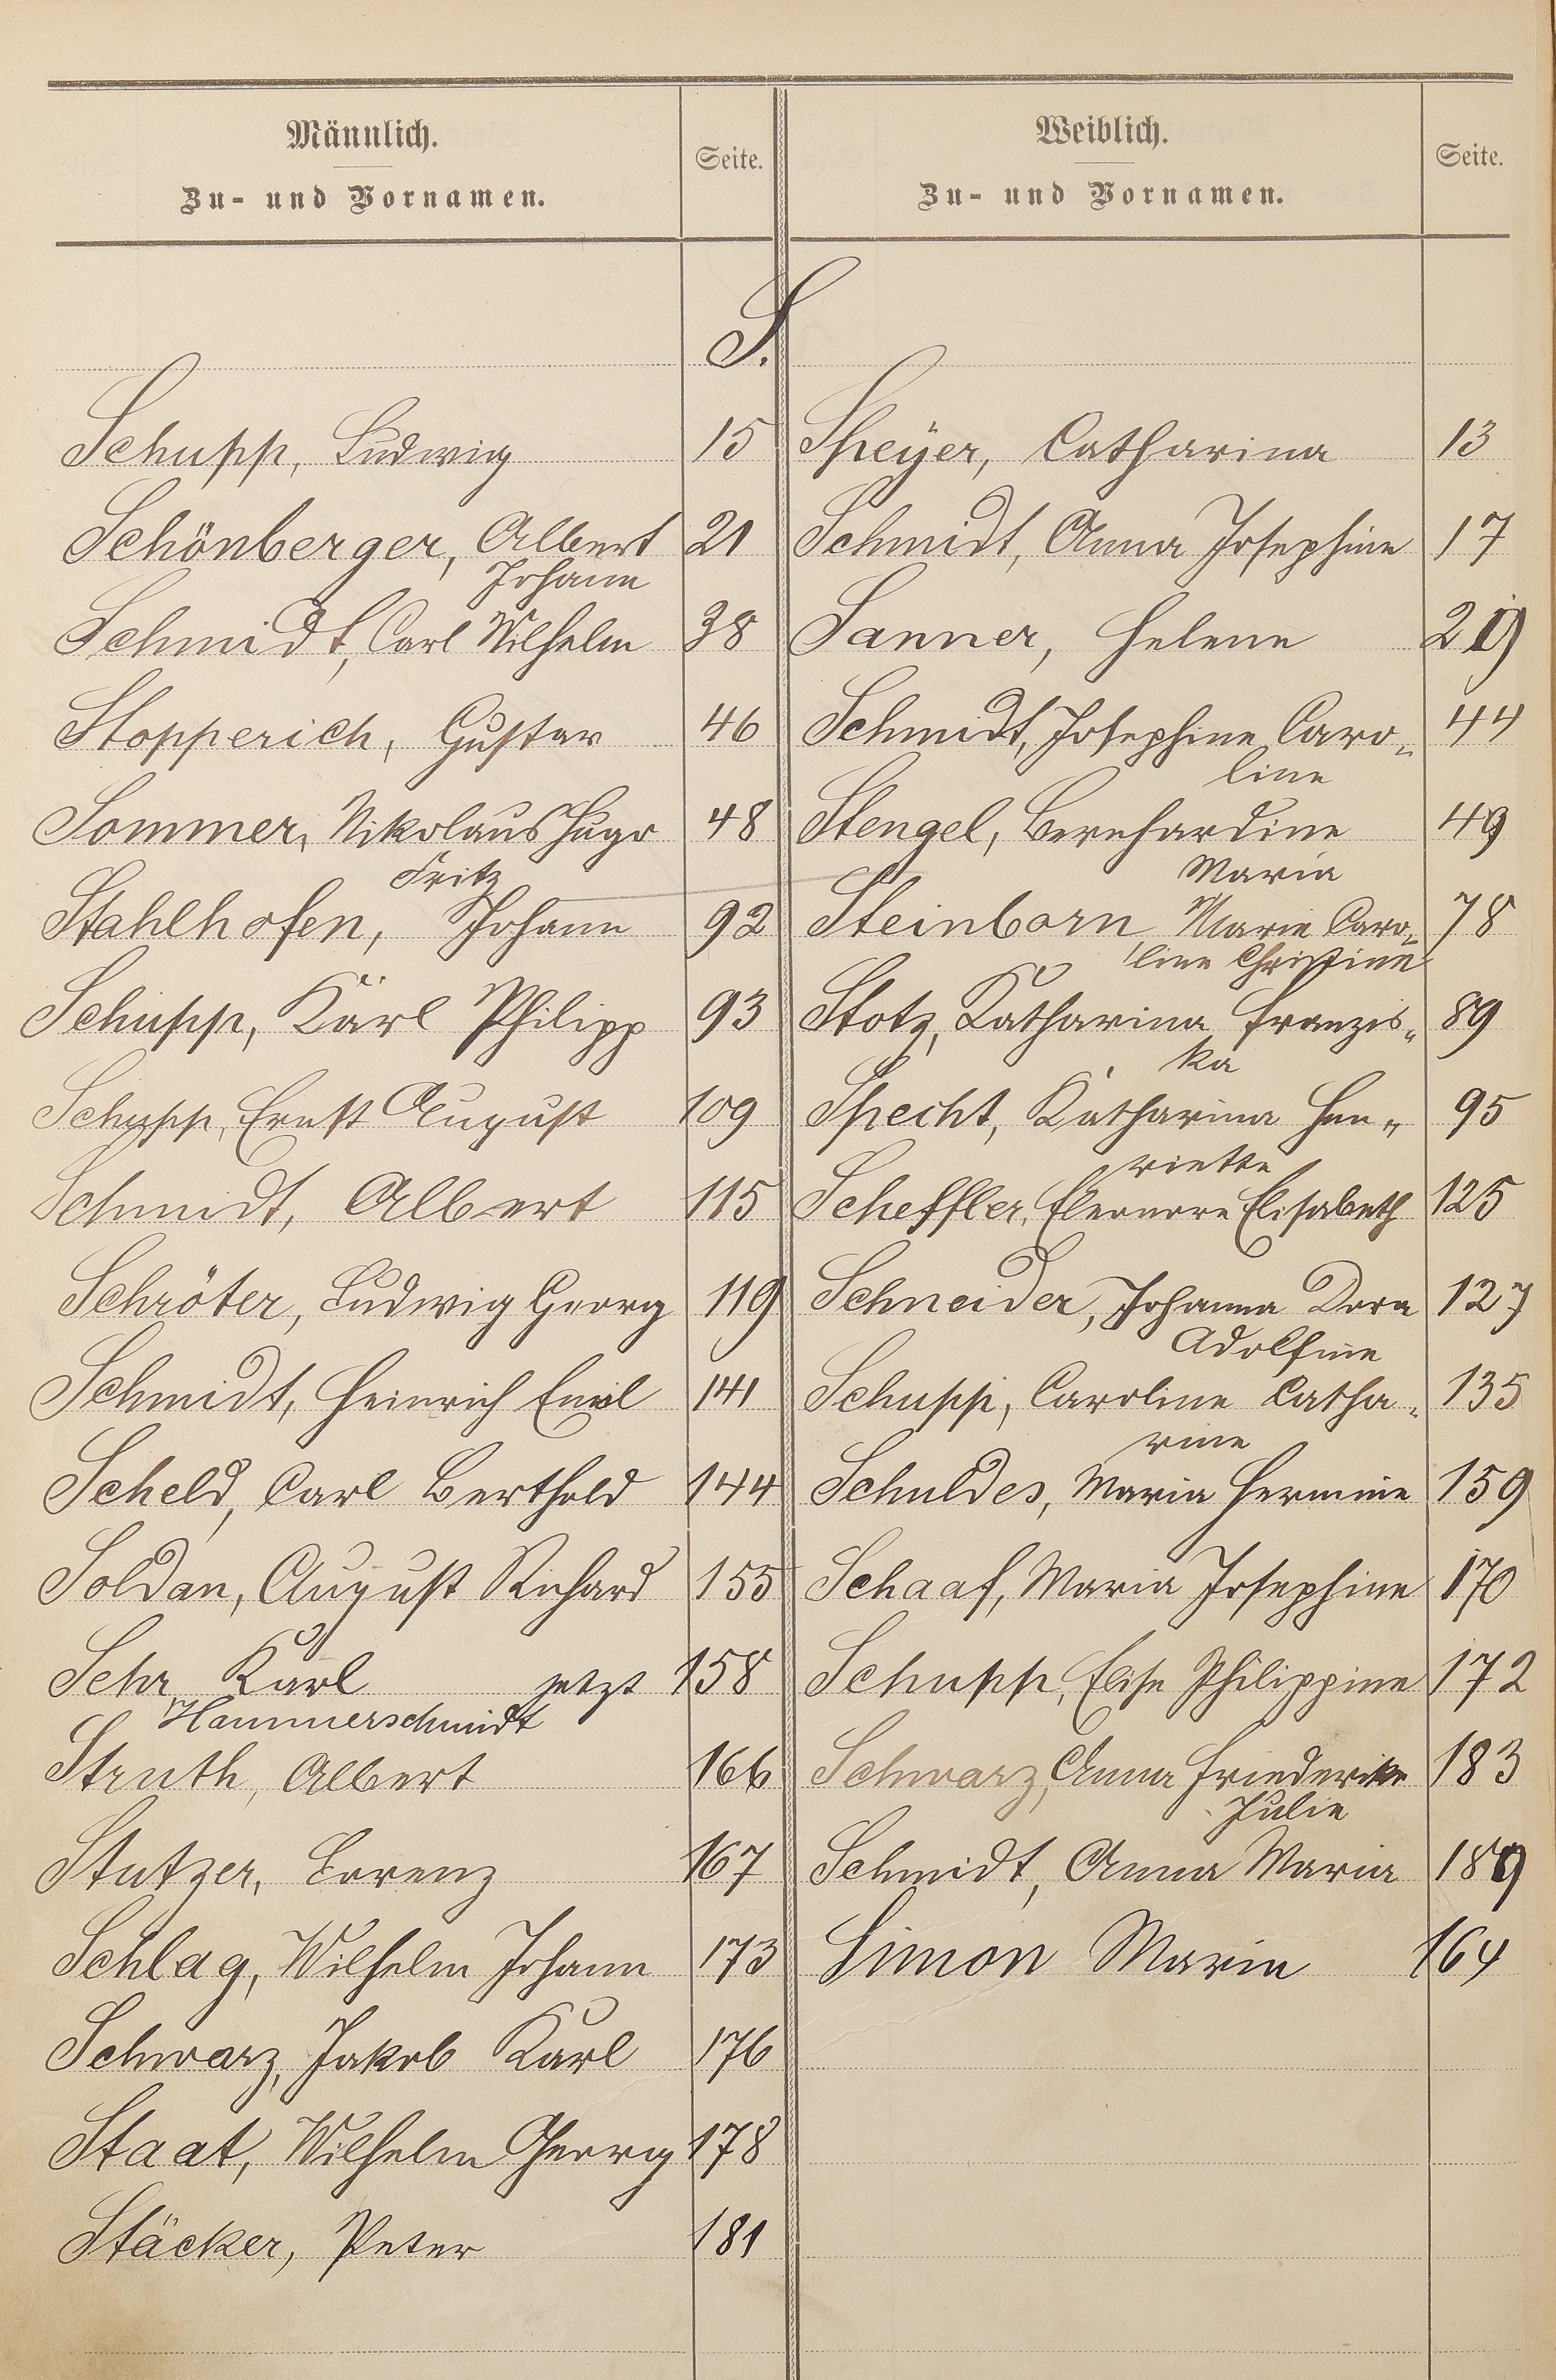 Männlich.
Zu- und Vornamen.
Seite.
Weiblich.
Zu- und Vornamen.
Seite.
S.
Schupp, Ludwig 15
Schönberger, Albert 21
Johann
Schmidt, Carl Wilhelm 38
Stopperich, Gustav 46
Sommer, Nikolaus Hugo 48
Fritz
Stahlhofen, Johann 92
Schupp, Karl Philipp 93
Schupp, Ernst August 109
Schmidt, Albert 115
Schröter, Ludwig Georg 119
Schmidt, Heinrich Emil 141
Scheld, Carl Berthold 144
Soldan, August Richard 155
Sehr, Karl jetzt 158
Hammerschmidt
Struth, Albert 166
Stutzer, Lorenz 167
Schlag, Wilhelm Johann 173
Schwarz, Jakob Karl 176
Staat, Wilhelm Georg 178
Stäcker, Peter 181
Speyer, Catharina 13
Schmidt, Anna Josephine 17
Sanner, Helene
Schmidt, Josephine Caro„ 44
line
Stengel, Bernhardine 49
Maria
Steinborn, Marie Caro„ 78
line Christine
Stotz, Katharina Franzis„ 89
ka
Specht, Katharina Hen„ 95
riette
Scheffler, Eleonore Elisabeth 125
Schneider, Johanna Dora 127
Adolfine
Schupp, Caroline Catha„ 135
rine
Schuldes, Maria Hermine 159
Schaaf, Maria Josephine 170
Schupp, Elise Philippine 172
Schwarz, Anna Friederike 183
Julie
Schmidt, Anna Maria 189
Simon Maria 164